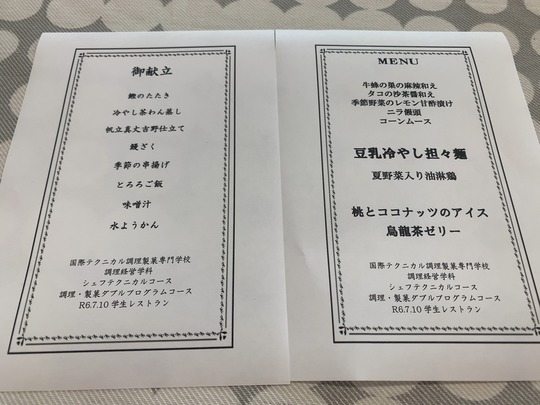 御献立
鰹のたたき
冷やし茶わん蒸し
帆立真丈吉野仕立て
鰻ざく
季節の串揚げ
とろろご飯
味噌汁
水ようかん
国際テクニカル調理製菓専門学校
調理経営学科
シェフテクニカルコース
調理・製菓ダブルプログラムコース
R6.7.10 学生レストラン
MENU
牛蜂の巣の麻辣和え
タコの沙茶醤和え
季節野菜のレモン甘酢漬け
ニラ饅頭
コーンムース
豆乳冷やし担々麺
夏野菜入り油淋鶏
桃とココナッツのアイス
烏龍茶ゼリー
国際テクニカル調理製菓専門学校
調理経営学科
シェフテクニカルコース
調理・製菓ダブルプログラムコース
R6.7.10 学生レストラン